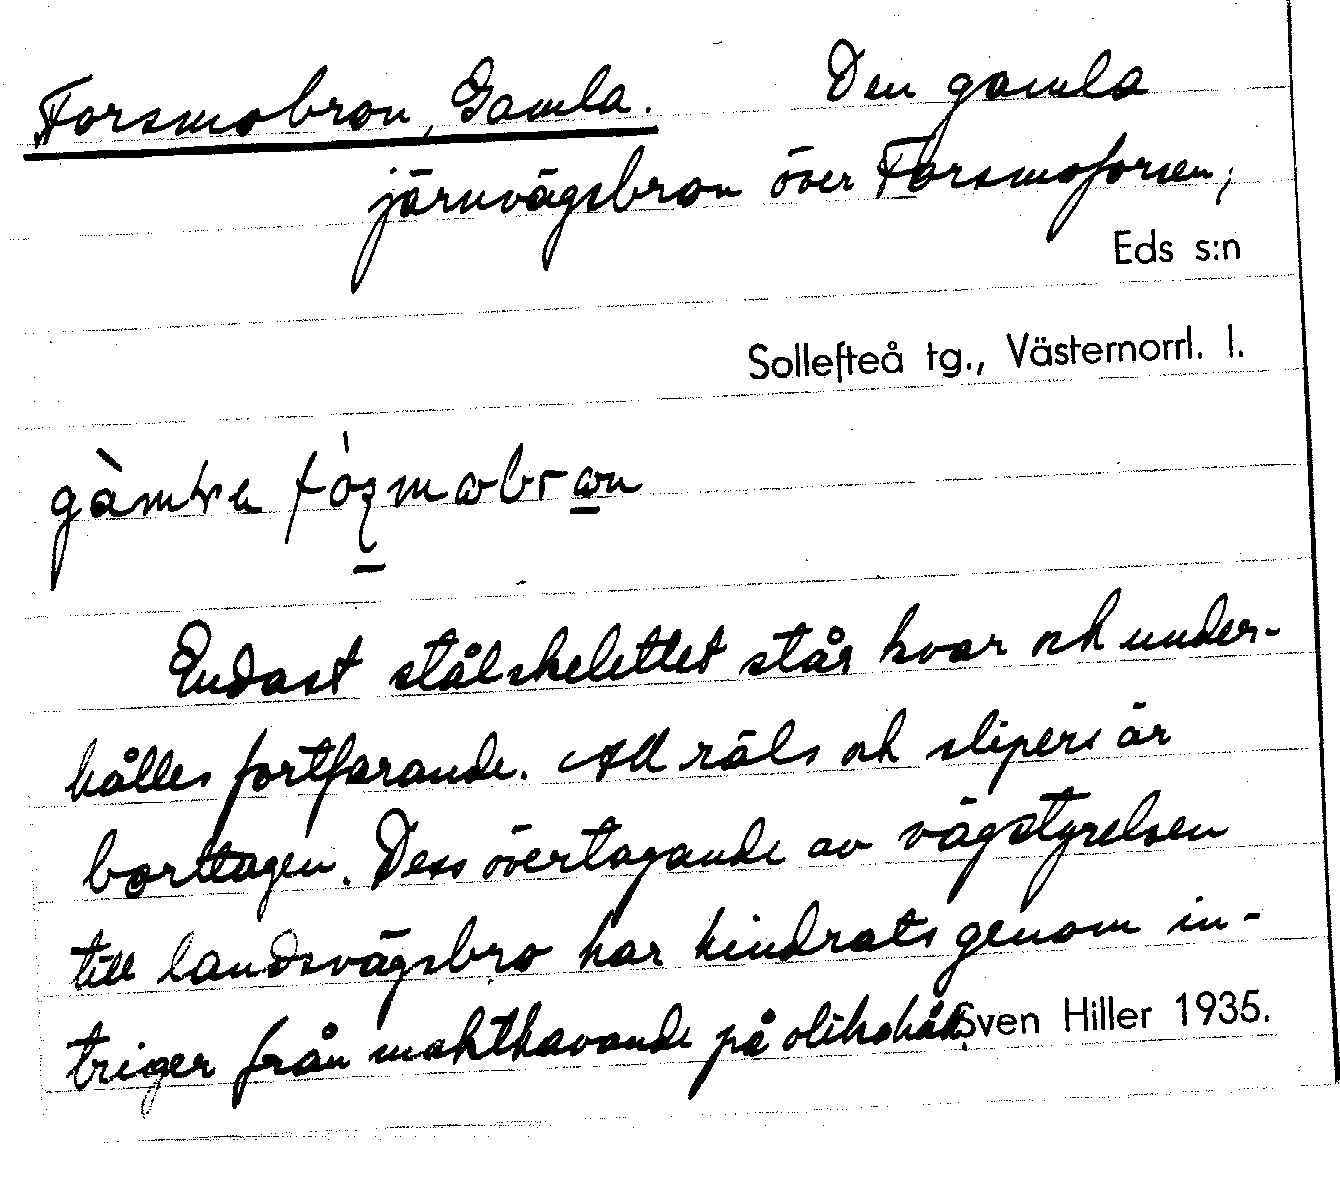 Forsmobron, Gamla. Den gamla
järnvägsbron över Forsmoforsen,
Eds s:n
Sollefteå tg., Västernorrl. l.
Endast stålskelettet står kvar och under-
hålles fortfarande. All räls och slipers är
borttagen. Dess övertagande av vägstyrelsen
till landsvägsbro har hindrats genom in-
triger från makthavande på olika håll.
Sven Hiller 1935.